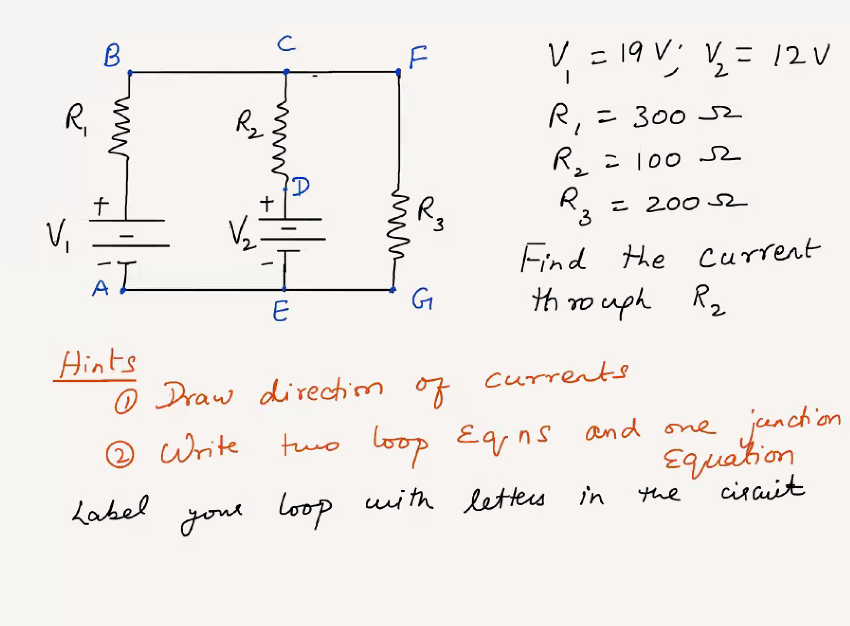 B C F
V₁ = 19 V; V₂ = 12 V
R₁ R₂
R₁ = 300 Ω
R₂ = 100 Ω
+ + D R₃
R₃ = 200 Ω
V₁ - V₂ -
- -
A E G
Find the current
through R₂
Hints
① Draw direction of currents
② Write two loop Eqns and one junction
Equation
Label your loop with letters in the circuit